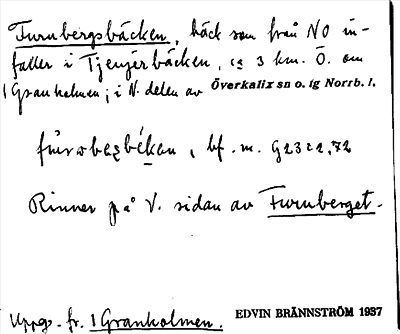 Furnbergsbäcken, bäck som från NO in-
faller i Tjenjärbäcken, ca 3 km. Ö. om
1 Granholmen; i N. delen av Överkalix sn o. tg Norrb. l.
bf. m.
Rinner på V. sidan av Furnberget.
Uppg. fr. 1 Granholmen.
EDVIN BRÄNNSTRÖM 1937